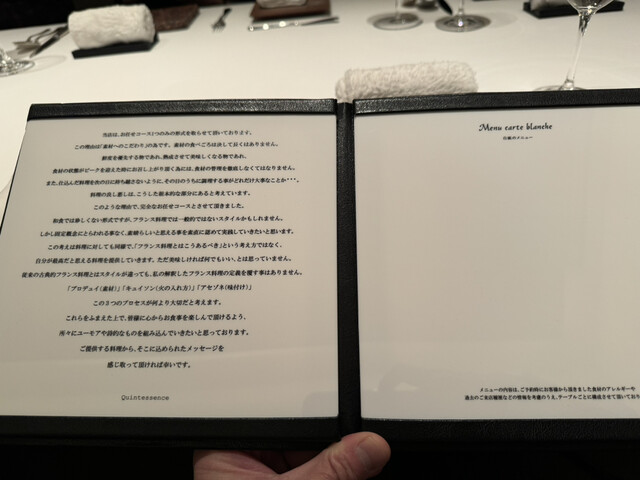 当店は、お任せコース1つのみの形式を取らせて頂いております。
この理由は「素材へのこだわり」の為です。素材の食べごろは決して長くはありません。
鮮度を優先する物であれ、熟成させて美味しくなる物であれ、
食材の状態がピークを迎えた時にお召し上がり頂く為には、食材の管理を徹底しなくてはなりません。
また、仕込んだ料理を次の日に持ち越さないように、その日のうちに調理する事がどれだけ大事なことか・・・。
料理の良し悪しは、こうした根本的な部分にあると考えています。
このような理由で、完全なお任せコースとさせて頂きました。
和食では珍しくない形式ですが、フランス料理では一般的ではないスタイルかもしれません。
しかし固定観念にとらわれる事なく、素晴らしいと思える事を素直に認めて実践していきたいと思います。
この考えは料理に対しても同様で、「フランス料理とはこうあるべき」という考え方ではなく、
自分が最高だと思える料理を提供していきます。ただ美味しければ何でもいい、とは思っていません。
従来の古典的フランス料理とはスタイルが違っても、私の解釈したフランス料理の定義を覆す事はありません。
「プロデュイ(素材)」「キュイソン(火の入れ方)」「アセゾネ(味付け)」
この3つのプロセスが何より大切だと考えます。
これらをふまえた上で、皆様に心からお食事を楽しんで頂けるよう、
所々にユーモアや詩的なものを組み込んでいきたいと思っております。
ご提供する料理から、そこに込められたメッセージを
感じ取って頂ければ幸いです。
Quintessence
Menu carte blanche
白紙のメニュー
メニューの内容は、ご予約時にお客様から頂きました食材のアレルギーや
過去のご来店履歴などの情報を考慮のうえ、テーブルごとに構成させて頂いてお